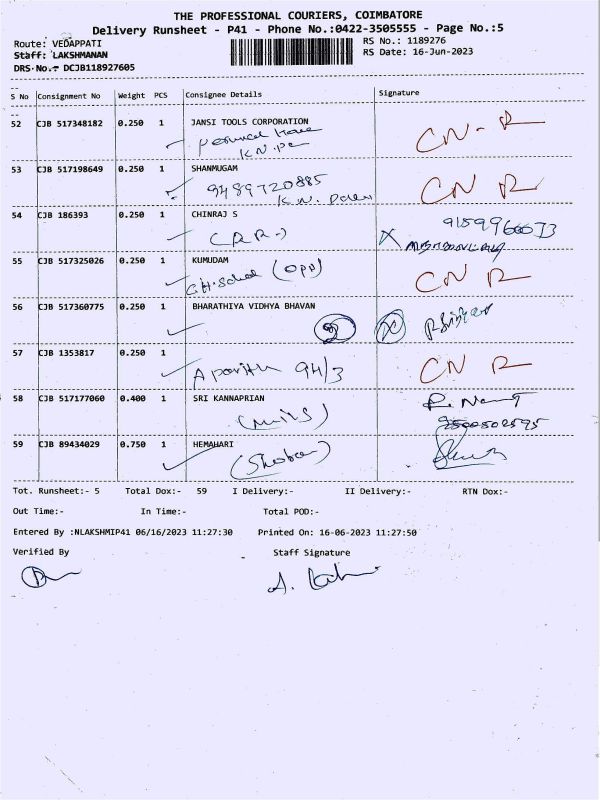 THE PROFESSIONAL COURIERS, COIMBATORE
Delivery Runsheet - P41 - Phone No.:0422-3505555 - Page No.:5
Route: VEDAPPATI RS No.: 1189276
Staff: LAKSHMANAN RS Date: 16-Jun-2023
DRS No.- DCJB118927605
S No Consignment No Weight PCS Consignee Details Signature
52 CJB 517348182 0.250 1 JANSI TOOLS CORPORATION
CN - R
53 CJB 517198649 0.250 1 SHANMUGAM
9489720885 CN R
K.N.
54 CJB 186393 0.250 1 CHINRAJ S
55 CJB 517325026 0.250 1 KUMUDAM
(OPP) CN R
56 CJB 517360775 0.250 1 BHARATHIYA VIDHYA BHAVAN
57 CJB 1353817 0.250 1
94/3 CN R
58 CJB 517177060 0.400 1 SRI KANNAPRIAN
59 CJB 89434029 0.750 1 HEMAHARI
Tot. Runsheet:- 5 Total Dox:- 59 I Delivery:- II Delivery:- RTN Dox:-
Out Time:- In Time:- Total POD:-
Entered By :NLAKSHMIP41 06/16/2023 11:27:30 Printed On: 16-06-2023 11:27:50
Verified By Staff Signature